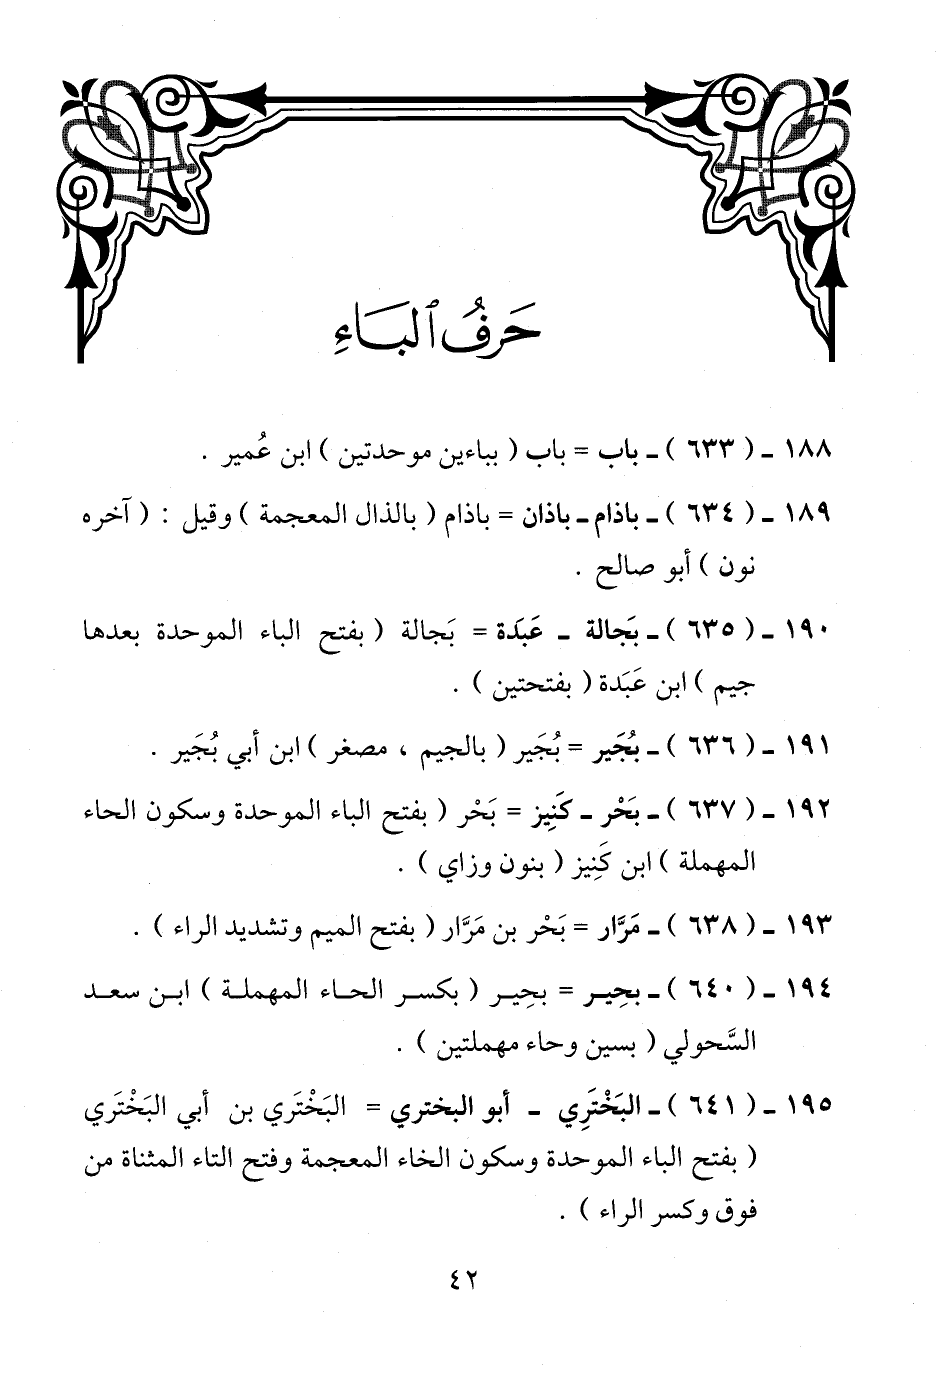 حَرفُ ٱلبَاءِ
١٨٨ ـ ( ٦٣٣ ) ـ باب = باب ( بباءين موحدتين ) ابن عُمير .
١٨٩ ـ ( ٦٣٤ ) ـ باذام ـ باذان = باذام ( بالذال المعجمة ) وقيل : ( آخره
نون ) أبو صالح .
١٩٠ ـ ( ٦٣٥ ) ـ بَجالة ـ عَبَدَة = بَجالة ( بفتح الباء الموحدة بعدها
جيم ) ابن عَبَدة ( بفتحتين ) .
١٩١ ـ ( ٦٣٦ ) ـ بُجَير = بُجَير ( بالجيم ، مصغر ) ابن أبي بُجَير .
١٩٢ ـ ( ٦٣٧ ) ـ بَحْر ـ كَنِيز = بَحْر ( بفتح الباء الموحدة وسكون الحاء
المهملة ) ابن كَنِيز ( بنون وزاي ) .
١٩٣ ـ ( ٦٣٨ ) ـ مَرَّار = بَحْر بن مَرَّار ( بفتح الميم وتشديد الراء ) .
١٩٤ ـ ( ٦٤٠ ) ـ بحِيـر = بحِيـر ( بكسـر الحـاء المهملـة ) ابـن سعـد
السَّحولي ( بسين وحاء مهملتين ) .
١٩٥ ـ ( ٦٤١ ) ـ البَخْتَرِي ـ أبو البختري = البَخْتَري بن أبي البَخْتَري
( بفتح الباء الموحدة وسكون الخاء المعجمة وفتح التاء المثناة من
فوق وكسر الراء ) .
٤٢